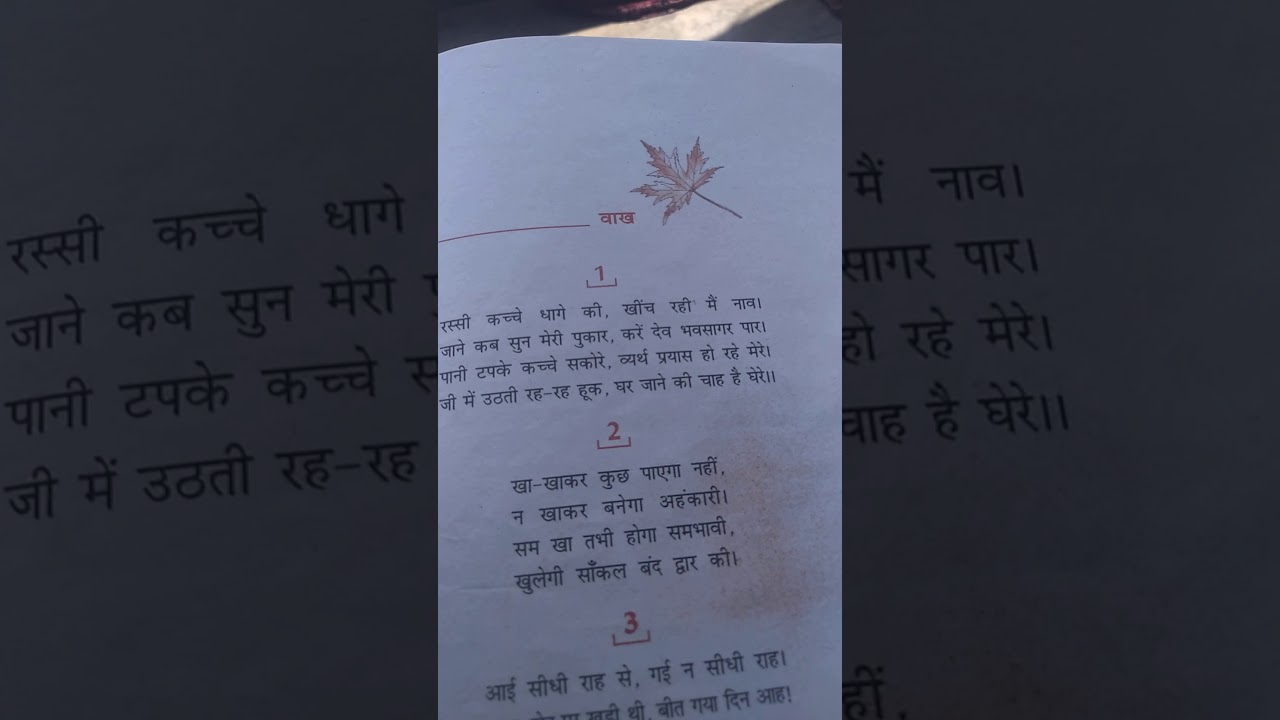 वाख
1
रस्सी कच्चे धागे की, खींच रही मैं नाव।
जाने कब सुन मेरी पुकार, करें देव भवसागर पार।
पानी टपके कच्चे सकोरे, व्यर्थ प्रयास हो रहे मेरे।
जी में उठती रह-रह हूक, घर जाने की चाह है घेरे।।
2
खा-खाकर कुछ पाएगा नहीं,
न खाकर बनेगा अहंकारी।
सम खा तभी होगा समभावी,
खुलेगी साँकल बंद द्वार की।
3
आई सीधी राह से, गई न सीधी राह।
खड़ी थी, बीत गया दिन आह!